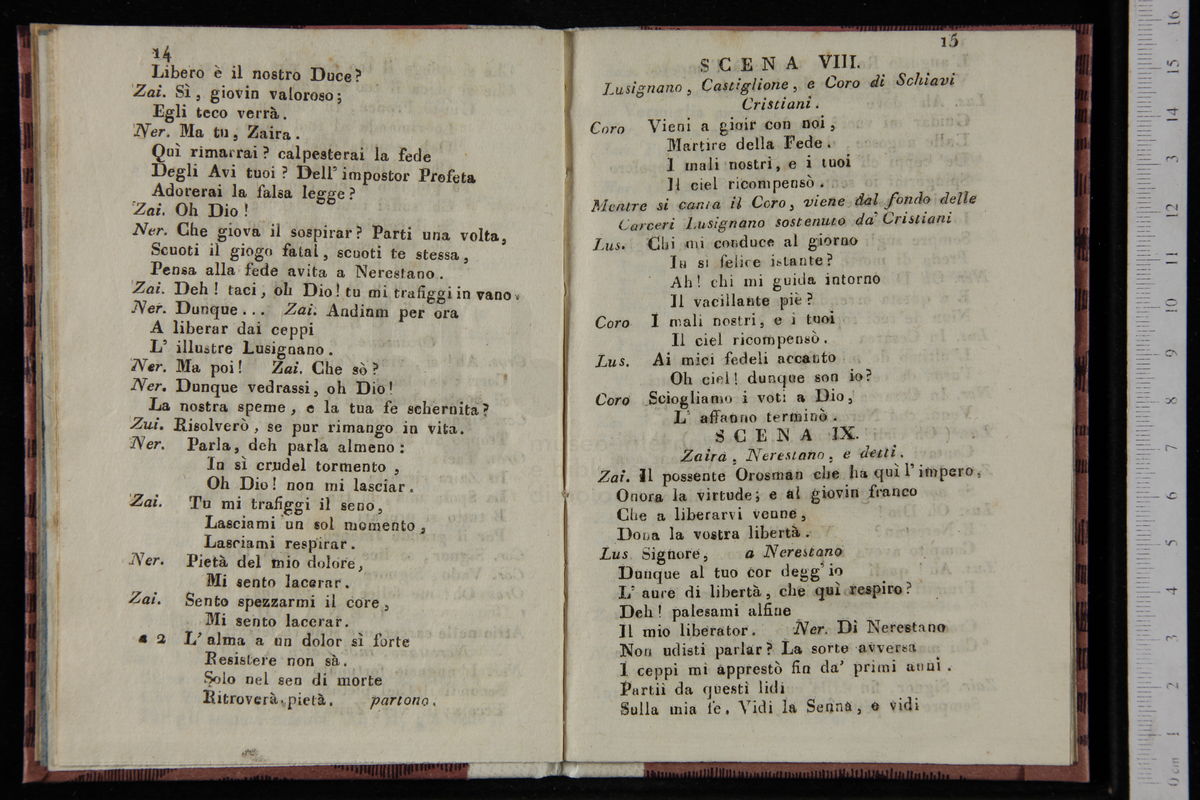 14
Libero è il nostro Duce?
Zai. Sì, giovin valoroso;
Egli teco verrà.
Ner. Ma tu, Zaira.
Quì rimarrai? calpesterai la fede
Degli Avi tuoi? Dell' impostor Profeta
Adorerai la falsa legge?
Zai. Oh Dio!
Ner. Che giova il sospirar? Parti una volta,
Scuoti il giogo fatal, scuoti te stessa,
Pensa alla fede avita a Nerestano.
Zai. Deh! taci, oh Dio! tu mi trafiggi in vano.
Ner. Dunque... Zai. Andiam per ora
A liberar dai ceppi
L' illustre Lusignano.
Ner. Ma poi! Zai. Che sò?
Ner. Dunque vedrassi, oh Dio!
La nostra speme, e la tua fe schernita?
Zai. Risolverò, se pur rimango in vita.
Ner. Parla, deh parla almeno:
In sì crudel tormento,
Oh Dio! non mi lasciar.
Zai. Tu mi trafiggi il seno,
Lasciami un sol momento,
Lasciami respirar.
Ner. Pietà del mio dolore,
Mi sento lacerar.
Zai. Sento spezzarmi il core,
Mi sento lacerar.
a 2 L' alma a un dolor sì forte
Resistere non sà.
Solo nel sen di morte
Ritroverà pietà. partono.
15
SCENA VIII.
Lusignano, Castiglione, e Coro di Schiavi
Cristiani.
Coro Vieni a gioir con noi,
Martire della Fede.
I mali nostri, e i tuoi
Il ciel ricompensò.
Mentre si canta il Coro, viene dal fondo delle
Carceri Lusignano sostenuto da' Cristiani
Lus. Chi mi conduce al giorno
In sì felice istante?
Ah! chi mi guida intorno
Il vacillante piè?
Coro I mali nostri, e i tuoi
Il ciel ricompensò.
Lus. Ai miei fedeli accanto
Oh ciel! dunque son io?
Coro Sciogliamo i voti a Dio,
L' affanno terminò.
SCENA IX.
Zaira, Nerestano, e detti.
Zai. Il possente Orosman che ha quì l' impero,
Onora la virtude; e al giovin franco
Che a liberarvi venne,
Dona la vostra libertà.
Lus. Signore, a Nerestano
Dunque al tuo cor degg' io
L' aure di libertà, che quì respiro?
Deh! palesami alfine
Il mio liberator. Ner. Di Nerestano
Non udisti parlar? La sorte avversa
I ceppi mi apprestò fin da' primi anni.
Partii da questi lidi
Sulla mia fe. Vidi la Senna, e vidi